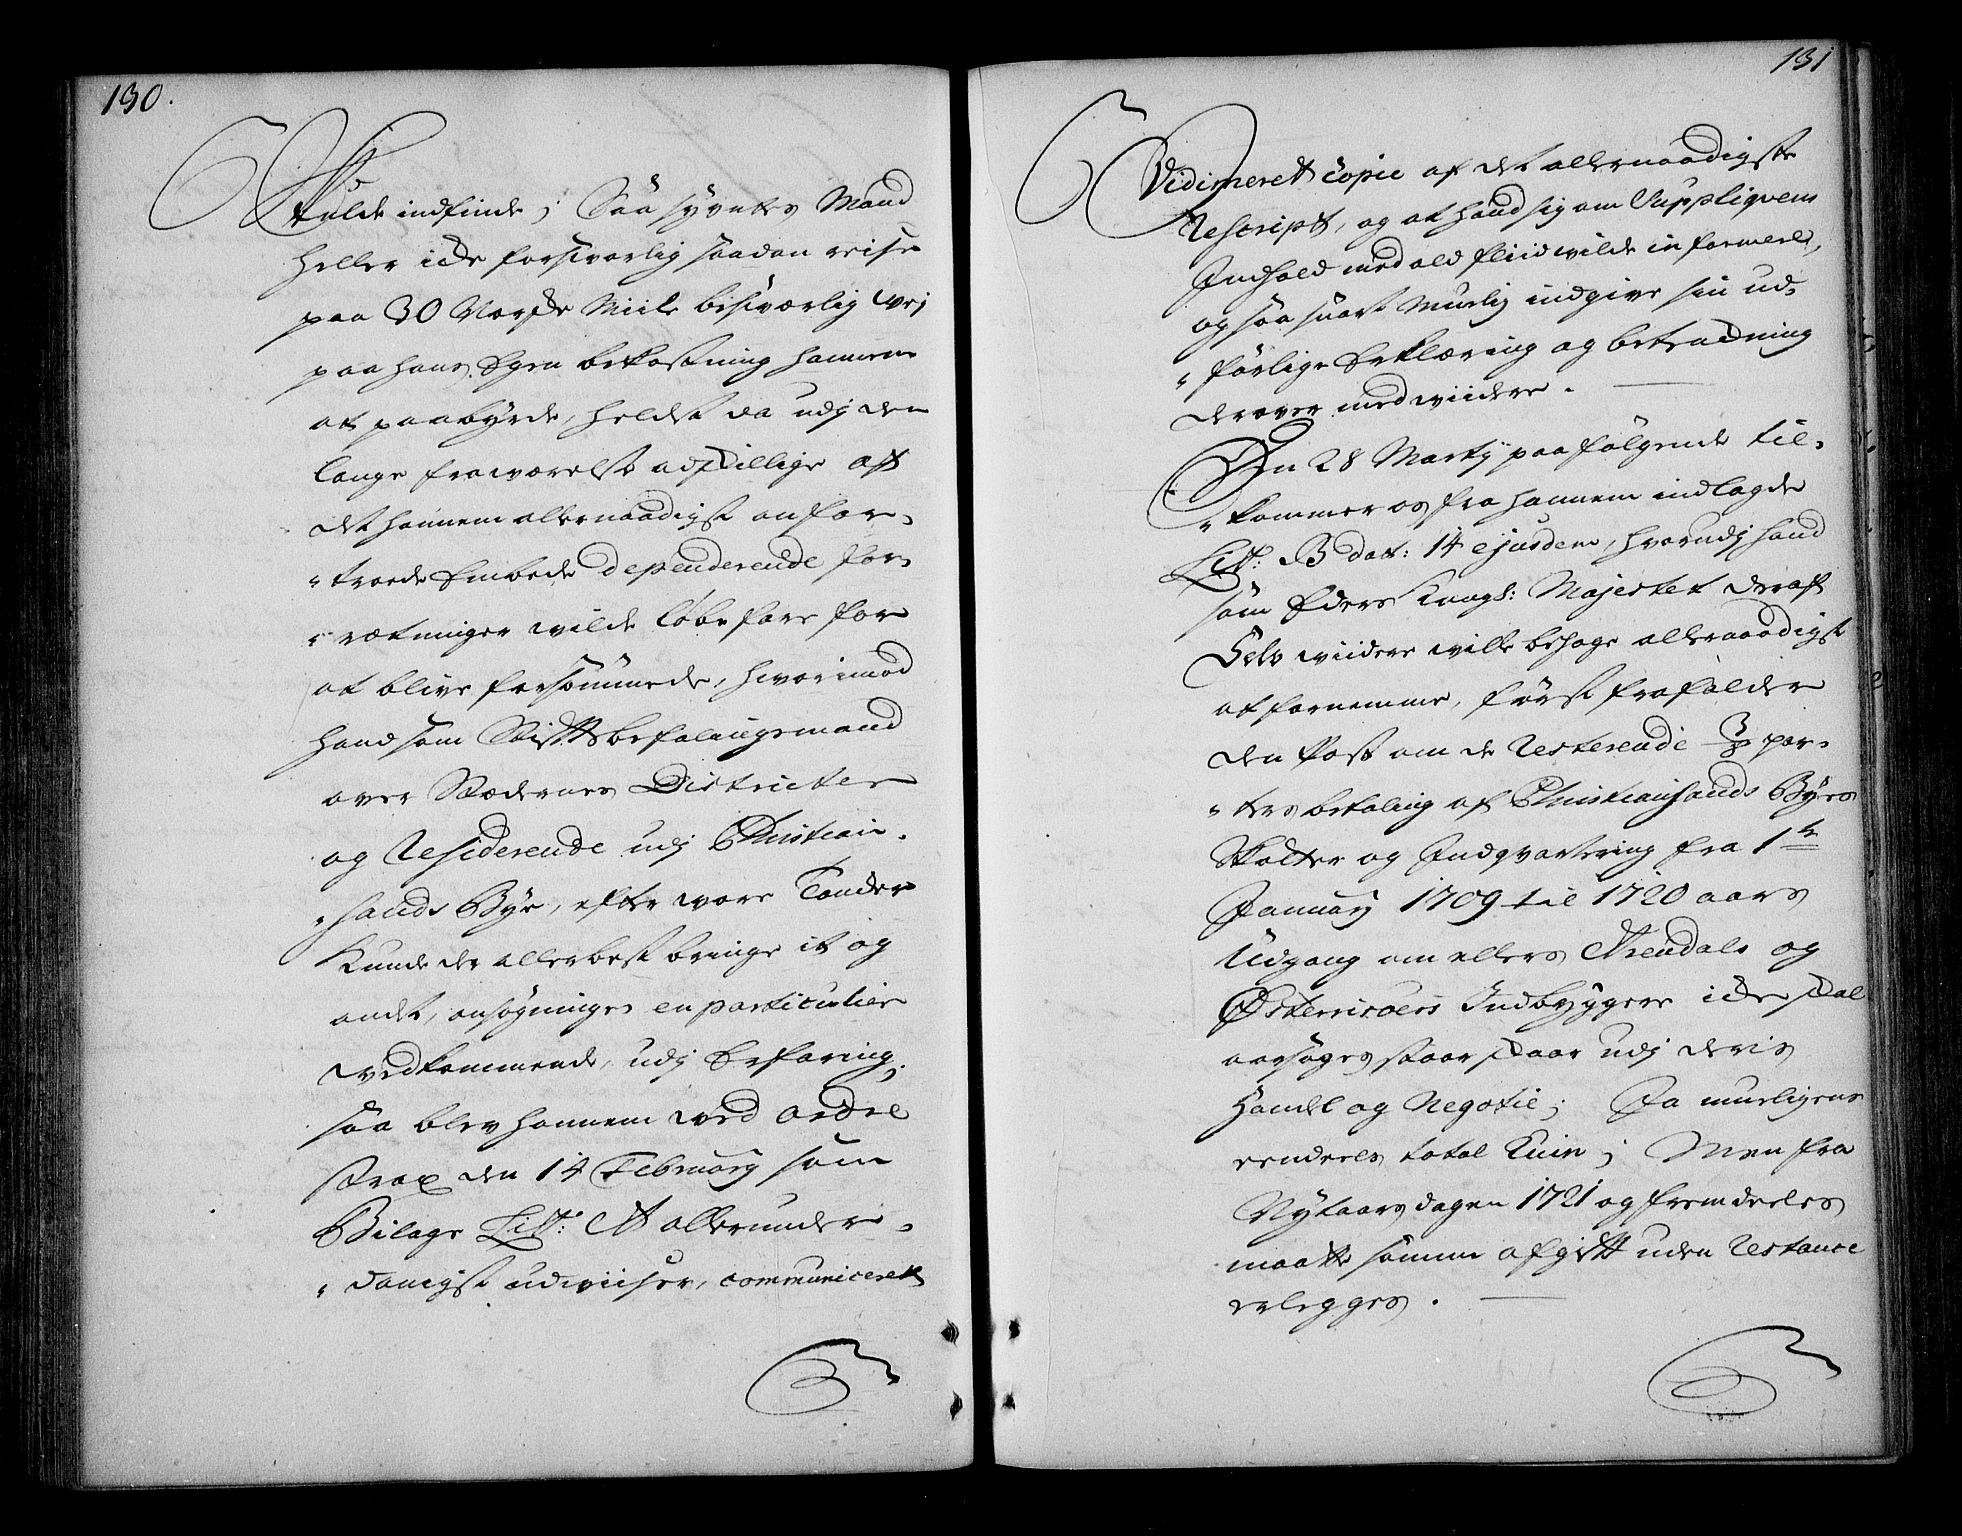 130.
Skulde indfinde; Saa syyntes Mand
heller icke forsvarlig saadan reise
paa 30 Norske Miile besværlig wej
paa hans Egen bekostning hannem
at paabyrde, heldst da udj den
lange fraværelse adskillige aff
det hannem allernaadigst anfor„
„troede Embede dependerende for„
„rætninger wilde løbe fare for
at blive forsømmede, hvorimod
hand som Stifftsbefalingsmand
over Stædernes Districter
og Residerende udj Christian„
„sands Bye, efter wore Tander
Kunde der allerbest bringe it og
andet, ansøgningen en particulier
vedkommende, udj Erfaring,
saa blev hannem ved ordre
strax den 14 February som
Bilage Litt: A allerunder„
„danigst udwiiser, communiceret
131
Vidimerett copie af det allernaadigste
Rescript, og at hand sig om Suppliqvens
Indhold med ald fliid wilde informere,
og saa snart Muelig indgive sin ud„
„førlige Erklæring og betenckning
derover med wiidere.
Den 28 Marty paafølgende til„
„kommer os fra hannem indlagde
Litt: B dat: 14 ejusdem, hvorudj hand
som Eders Kongl: Majestet deraf
Selv wiidere wille behage allernaadigst
at fornemme, først frafalder
den Post om de Resterende 3/8 par„
„ters betaling af Christiansands Byes
Skatter og Indqvartering fra 1te
January 1709 til 1720 aars
Udgang om ellers Arendals og
Østerrisøers Indbyggere icke skal
aarsages staar skaar udj deris
Handel og Negotie; Ja mueligens
eendeels total Ruin; Men fra
Nytaarsdagen 1721 og fremdeeles
maatte samme afgifft uden Restance
erlegges.